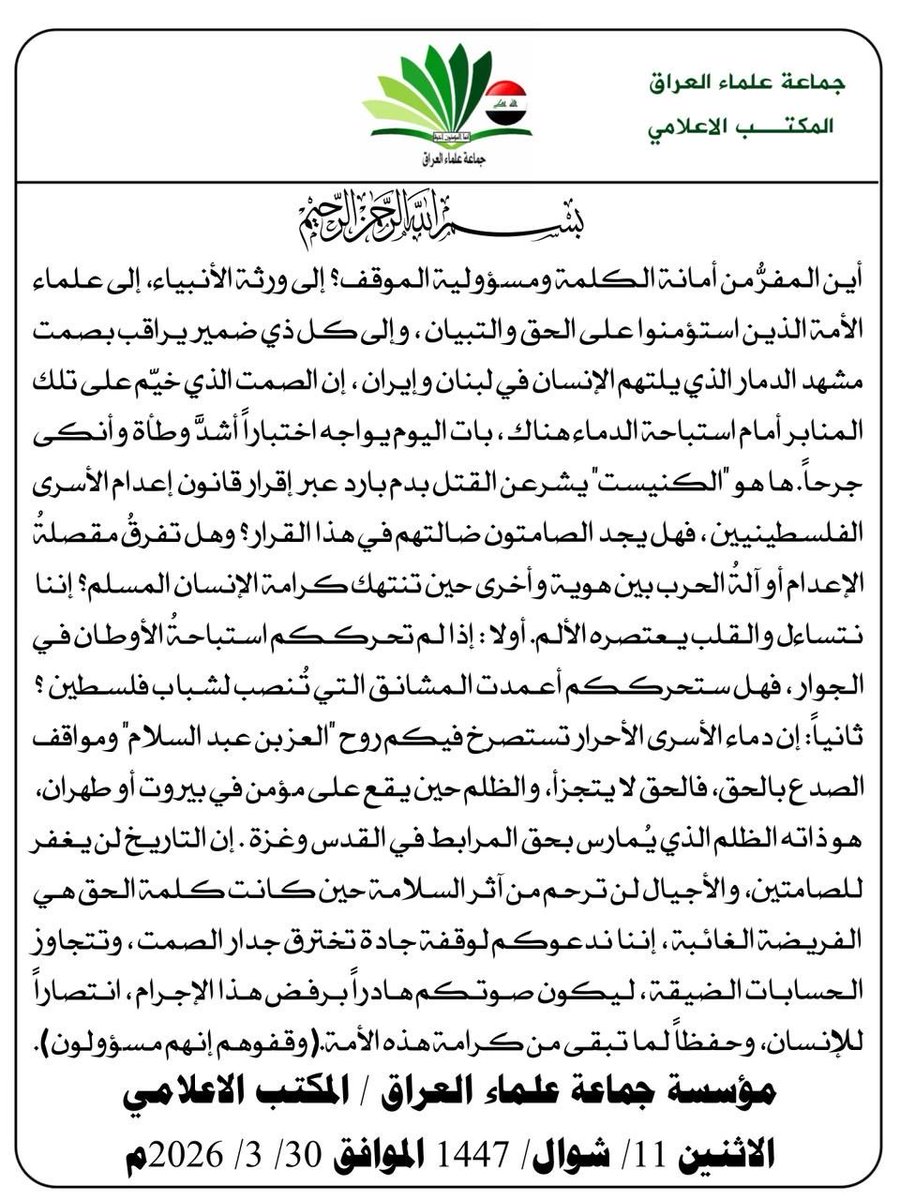 جماعة علماء العراق
المكتب الاعلامي
جماعة علماء العراق
بسم الله الرحمن الرحيم
أين المفرُّ من أمانة الكلمة ومسؤولية الموقف؟ إلى ورثة الأنبياء، إلى علماء
الأمة الذين استؤمنوا على الحق والتبيان ، وإلى كل ذي ضمير يراقب بصمت
مشهد الدمار الذي يلتهم الإنسان في لبنان وإيران ، إن الصمت الذي خيّم على تلك
المنابر أمام استباحة الدماء هناك ، بات اليوم يواجه اختباراً أشدَّ وطأة وأنكى
جرحاً. ها هو "الكنيست" يشرعن القتل بدم بارد عبر إقرار قانون إعدام الأسرى
الفلسطينيين ، فهل يجد الصامتون ضالتهم في هذا القرار؟ وهل تفرقُ مقصلةُ
الإعدام أو آلةُ الحرب بين هوية وأخرى حين تنتهك كرامة الإنسان المسلم؟ إننا
نتساءل والقلب يعتصره الألم. أولا : إذا لم تحرككم استباحةُ الأوطان في
الجوار ، فهل ستحرككم أعمدت المشانق التي تُنصب لشباب فلسطين ؟
ثانياً: إن دماء الأسرى الأحرار تستصرخ فيكم روح "العز بن عبد السلام" ومواقف
الصدع بالحق، فالحق لا يتجزأ، والظلم حين يقع على مؤمن في بيروت أو طهران،
هو ذاته الظلم الذي يُمارس بحق المرابط في القدس وغزة . إن التاريخ لن يغفر
للصامتين، والأجيال لن ترحم من آثر السلامة حين كانت كلمة الحق هي
الفريضة الغائبة ، إننا ندعوكم لوقفة جادة تخترق جدار الصمت ، وتتجاوز
الحسابات الضيقة ، ليكون صوتكم هادراً برفض هذا الإجرام ، انتصاراً
للإنسان، وحفظاً لما تبقى من كرامة هذه الأمة.(وقفوهم إنهم مسؤولون).
مؤسسة جماعة علماء العراق / المكتب الاعلامي
الاثنين 11/ شوال/ 1447 الموافق 30/ 3/ 2026م